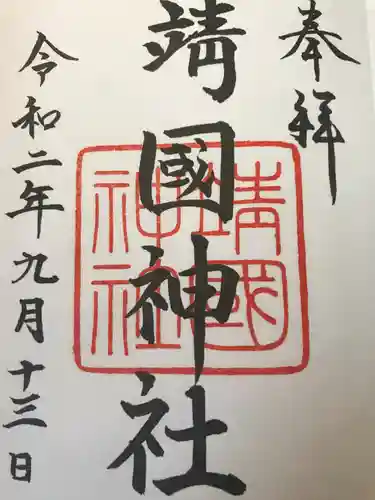 奉拝
靖國神社
靖國
神社
令和二年九月十三日